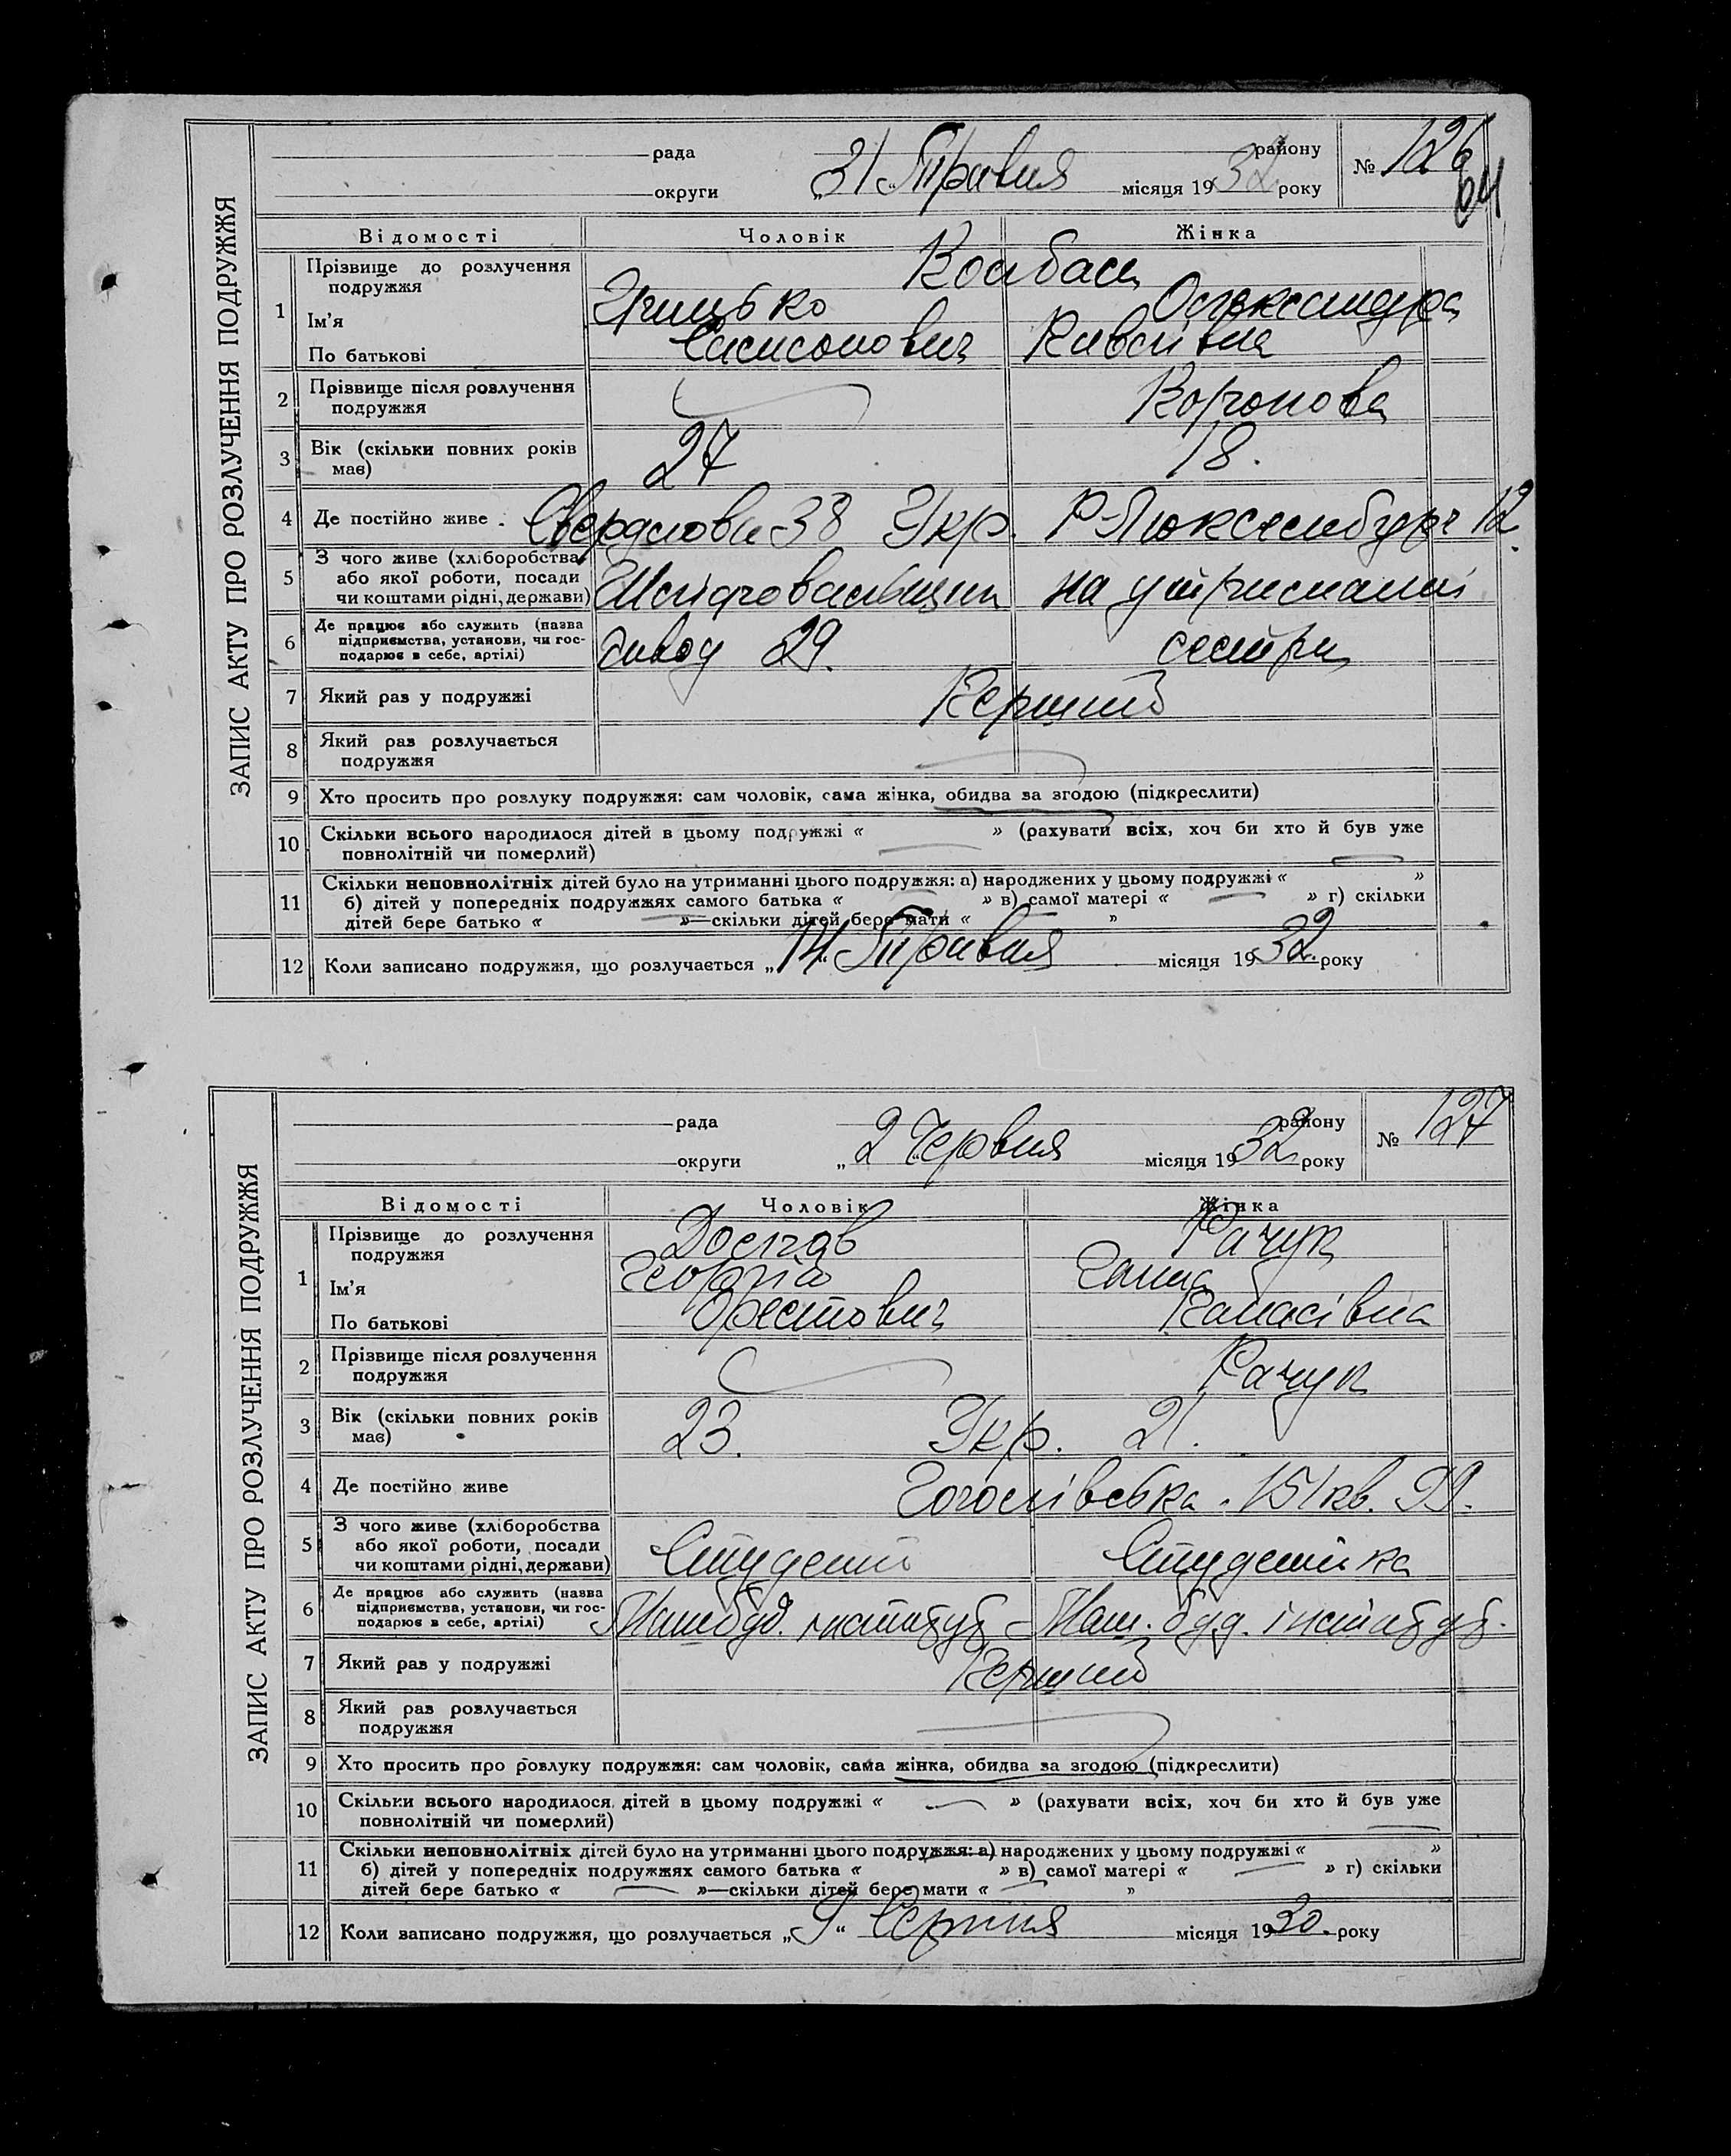 ЗАПИС АКТУ ПРО РОЗЛУЧЕННЯ ПОДРУЖЖЯ
рада
району
№ 126
64
округи „31 “ Травня місяця 1932 року
Відомості Чоловік Жінка
1 Прізвище до розлучення подружжя Ковбаса
Ім’я Грицько Олександра
По батькові Самсонович
2 Прізвище після розлучення подружжя Воронова
3 Вік (скільки повних років має) 27 18.
4 Де постійно живе Свердлова 38 Укр. Р. Люксембург 12.
5 З чого живе (хліборобства або якої роботи, посади чи коштами рідні, держави) Шліфовальщик на утриманні
6 Де працює або служить (назва підприємства, установи, чи господарює в себе, артілі) завод 29. сестри
7 Який раз у подружжі Перший
8 Який раз розлучається подружжя
9 Хто просить про розлуку подружжя: сам чоловік, сама жінка, обидва за згодою (підкреслити)
10 Скільки всього народилося дітей в цьому подружжі « — » (рахувати всіх, хоч би хто й був уже
повнолітній чи померлий)
11 Скільки неповнолітніх дітей було на утриманні цього подружжя: а) народжених у цьому подружжі « »
б) дітей у попередніх подружжях самого батька « » в) самої матері « » г) скільки
дітей бере батько « »—скільки дітей бере мати « »
12 Коли записано подружжя, що розлучається „14“ Травня місяця 1932. року
ЗАПИС АКТУ ПРО РОЗЛУЧЕННЯ ПОДРУЖЖЯ
рада
району
№ 127
округи „2 Червня місяця 1932 року
Відомості Чоловік Жінка
1 Прізвище до розлучення подружжя Рачук
Ім’я Георгій Ганна
По батькові Орестович Панасівна
2 Прізвище після розлучення подружжя Рачук
3 Вік (скільки повних років має) 23. Укр. 21.
4 Де постійно живе
5 З чого живе (хліборобства або якої роботи, посади чи коштами рідні, держави) Студент Студентка
6 Де працює або служить (назва підприємства, установи, чи господарює в себе, артілі) Машбуд. інститут Маш. буд. інститут.
7 Який раз у подружжі Перший
8 Який раз розлучається подружжя
9 Хто просить про розлуку подружжя: сам чоловік, сама жінка, обидва за згодою (підкреслити)
10 Скільки всього народилося дітей в цьому подружжі « — » (рахувати всіх, хоч би хто й був уже
повнолітній чи померлий)
11 Скільки неповнолітніх дітей було на утриманні цього подружжя: а) народжених у цьому подружжі « »
б) дітей у попередніх подружжях самого батька « » в) самої матері « » г) скільки
дітей бере батько « — »—скільки дітей бере мати « »
12 Коли записано подружжя, що розлучається „9“ Серпня місяця 1930. року